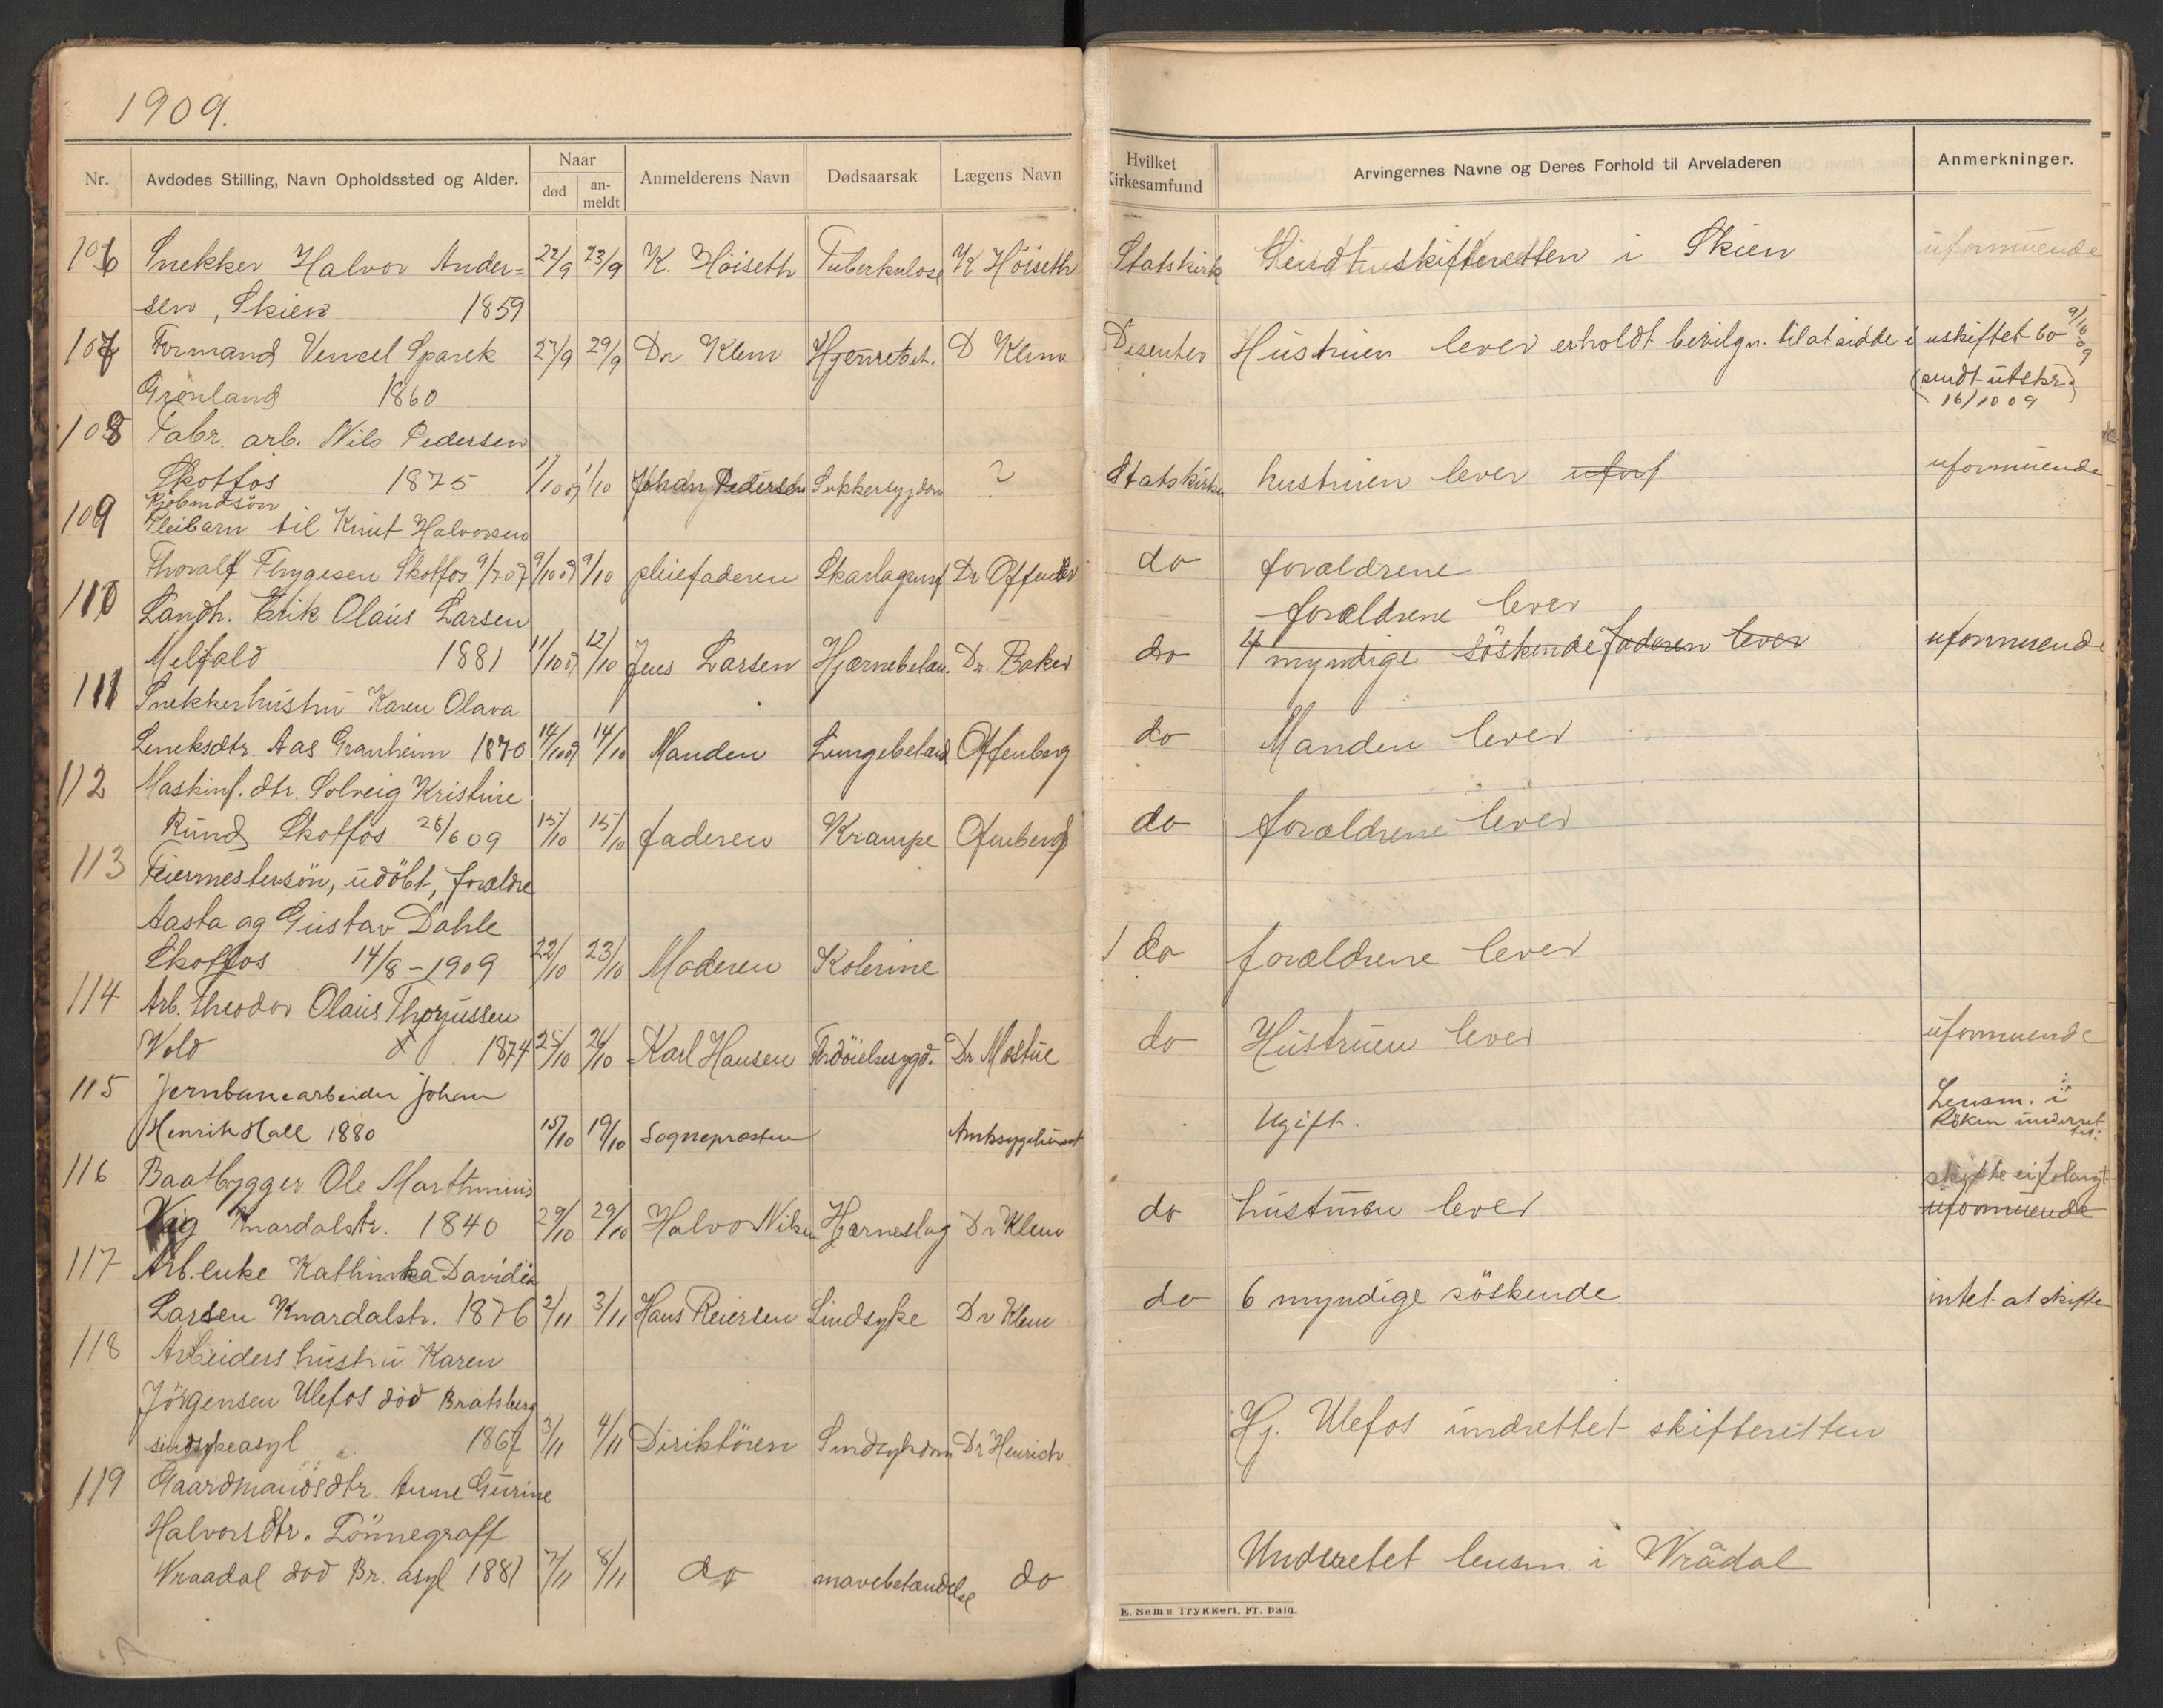 1909.
Nr.
Avdødes Stilling, Navn Opholdssted og Alder.
Naar
død
an-
meldt
Anmelderens Navn
Dødsaarsak
Lægens Navn
Hvilket
Kirkesamfund
Arvingernes Navne og Deres Forhold til Arveladeren
Anmerkninger.
106 Snekker Halvor Ander= 22/9 23/9 K. Höiseth Tuberkulose K Höiseth Statskirk Sendt skifteretten i Skien uformuende
sen, Skien 1859
107 Formand Vencel Sparek 27/9 29/9 Dr Klem D Klem Disenter Hustruen lever erholdt bevilgn. til at sidde i uskiftet bo 9/10 09
Grönland 1860 (sendt utskr.
16/10 09
108 Fabr. arb. Nils Pedersen
Skotfos 1875 1/10 09 1/10 Johan Pedersen Sukkersygdom ? Statskirken hustruen lever uformuende
Kjöbmdsön
109 Pleibarn til Knut Halvorsen
Thoralf Thygesen Skotfos 9/7 07 9/10 09 9/10 pleiefaderen Skarlagensf Dr Offenber do forældrene
110 Landh. Erik Olaus Larsen forældrene lever
Melfald 1881 11/10 09 12/10 Jens Larsen Hjærnebetæn. Dr. Baker do 4 myndige söskende faderen lever uformuende
111 Snekkerhustru Karen Olava
Aas Granheim 1870 14/10 09 14/10 Manden Lungebetænd Offenberg do Manden lever
112 Maskinf. dtr. Solveig Kristine
Rund Skotfos 26/6 09 15/10 15/10 faderen Krampe Ofenberg do forældrene lever
113 Feiermestersön, udöbt, forældre
Aasta og Gustav Dahle
Skotfos 14/8-1909 22/10 23/10 Moderen Kolerine do forældrene lever
114 Arb. Theodor Olaus Thorjussen
Vold 1874 25/10 26/10 Karl Hansen Fordöielsesygd. Dr. Mostue do Hustruen lever uformuende
115 Jernbanearbeider Johan Lensm. i
Henrik Hall 1880 15/10 19/10 Sogneprosten Amtssygehuset Ugift. Röken underret-
tet.
116 Baatbygger Ole Marthinius skifte ei forlangt
Vig Knardalstr. 1840 29/10 29/10 Halvor Nilsen Hjærneslag Dr Klem do hustruen lever uformuende
117 Arb. enke Kathinka Davidia
Larsen Knardalstr. 1876 2/11 3/11 Hans Reiersen Sindsyke Dr Klem do 6 myndige söskende intet at skifte
118 Arbeiders hustru Karen
Jörgensen Ulefos död Bratsberg
sindsykeasyl 1867 3/11 4/11 Diriktören Sindsykdom Dr Henrich Hj. Ulefos undrettet skifteretten
119 Gaardmandsdtr. Anne Gurine
Halvorsdtr. Lönnegraff
Vraadal död Br. asyl 1881 7/11 8/11 do mavebetændelse do Underretet lensm. i Vrådal
E. Sem's Trykkeri, Fr. hald.